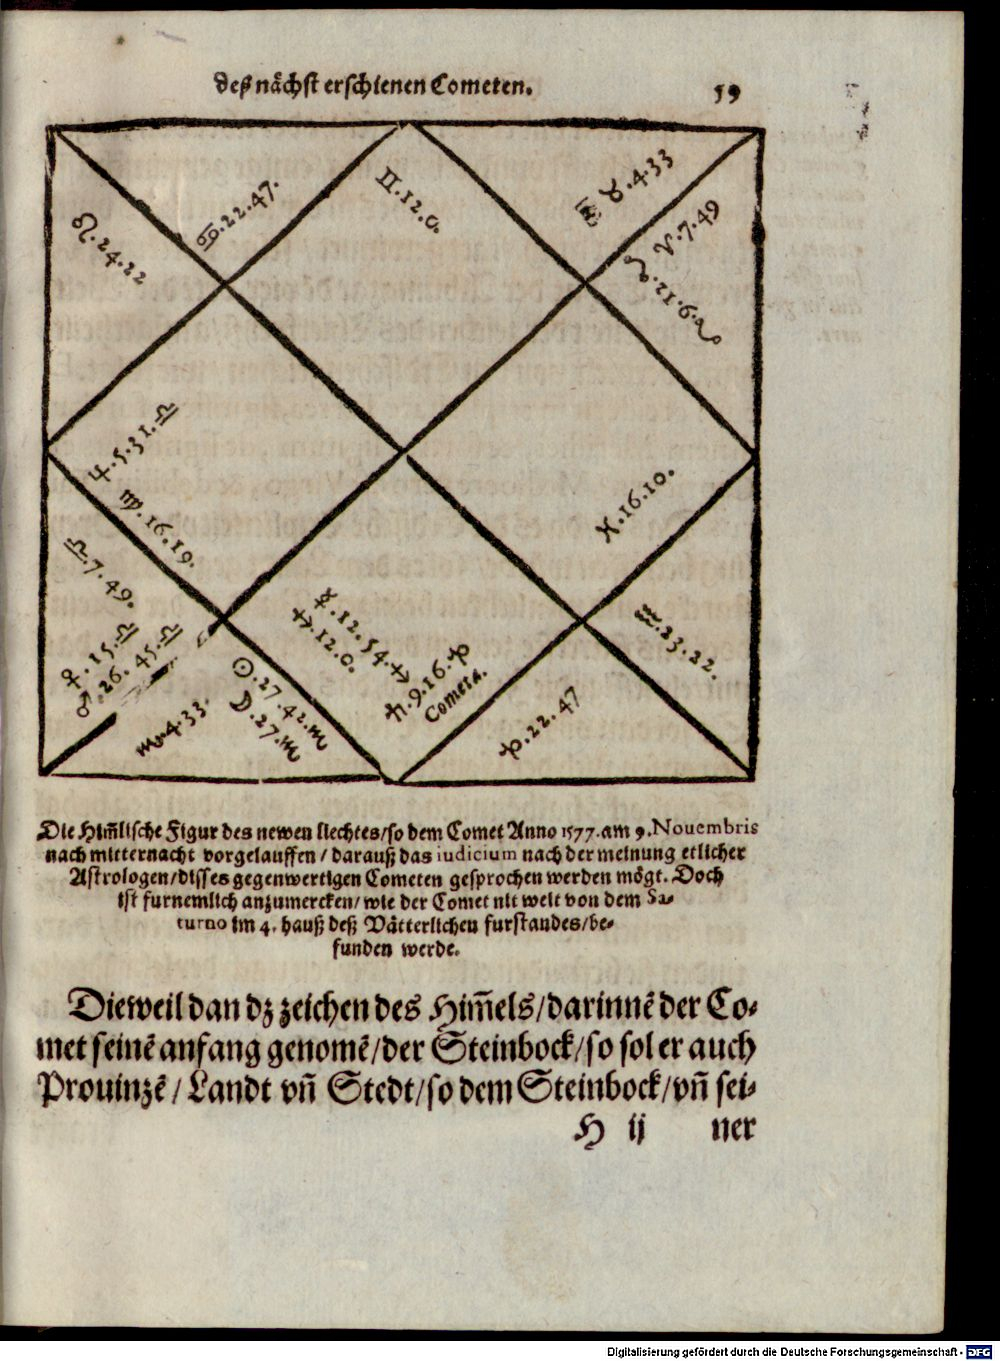 deß nächst erschienen Cometen. 59
♌.24.22
♋.22.47.
♊.12.0.
♉.4.33
♈.7.49
.21.6.
♃.5.31.♎
♍.16.19.
♎.7.49.
♀.15.♎
♂.26.45.♎
♏.4.33.
☉.27.42.♏
☽.27.♏
☿.12.54.♐
♐.12.0.
♄.9.16.♑
Cometa.
♑.22.47
♒.23.22.
♓.16.10.
Die Him̄lische Figur des newen liechtes/so dem Comet Anno 1577.am 9.Nouembris
nach mitternacht vorgelauffen/darauß das iudicium nach der meinung etlicher
Astrologen/disses gegenwertigen Cometen gesprochen werden mögt. Doch
ist furnemlich anzumercken/wie der Comet nit weit von dem Sa-
turno im 4. hauß deß Vätterlichen furstandes/be-
funden werde.
Dieweil dan dz zeichen des Him̄els/darinnē der Co-
met seinē anfang genomē/der Steinbock/so sol er auch
Prouinzē/Landt vn̄ Stedt/so dem Steinbock/vn̄ sei-
H ij ner
Digitalisierung gefördert durch die Deutsche Forschungsgemeinschaft - DFG